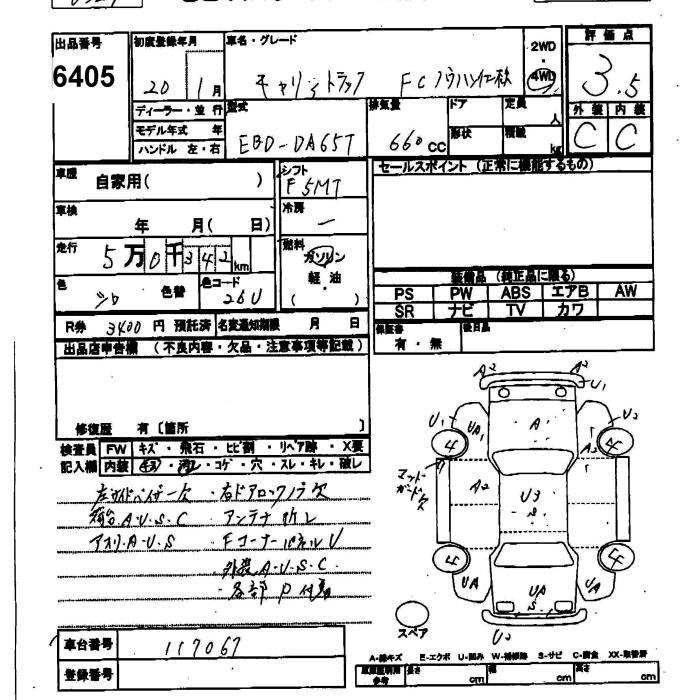 出品番号
6405
初度登録年月
20 1月
車名・グレード
キャリィトラック FC
2WD
・
4WD
評価点
3.5
外装 内装
C C
ディーラー・並行
モデル年式 年
ハンドル 左・右
型式
EBD-DA65T
排気量
660cc
ドア
形状
定員
人
積載
kg
車歴
自家用( )
シフト
F5MT
セールスポイント (正常に機能するもの)
車検
年 月( 日)
冷房
ー
走行
5万0千342km
燃料
ガソリン
・
軽油
( )
色
シロ
色替
色コード
26U
装備品 (純正品に限る)
PS PW ABS エアB AW
SR ナビ TV カワ
R券 3400円 預託済
名変通知期限 月 日
保証書
有・無
後日品
出品店申告欄 (不良内容・欠品・注意事項等記載)
修復歴 有〔箇所 〕
検査員
記入欄
FW キズ・飛石・ヒビ割・リペア跡・X要
内装 ・コゲ・穴・スレ・キレ・破レ
左サイドバイザー欠・右ドアロックノブ欠
荷台A.U.S.C アンテナ折レ
アオリA.U.S FコーナーパネルU
外装A.U.S.C
各部P付着
A2 A2
U1
A1
U1 UA1 U2
4 4
A2
マッド
ガード欠
A2 U3
S
4 4
UA UA UA
S
スペア
U2
車台番号 117067
登録番号
A-線キズ E-エクボ U-凹み W-補修跡 S-サビ C-腐食 XX-取替済
参考
長さ cm
幅 cm
高さ cm